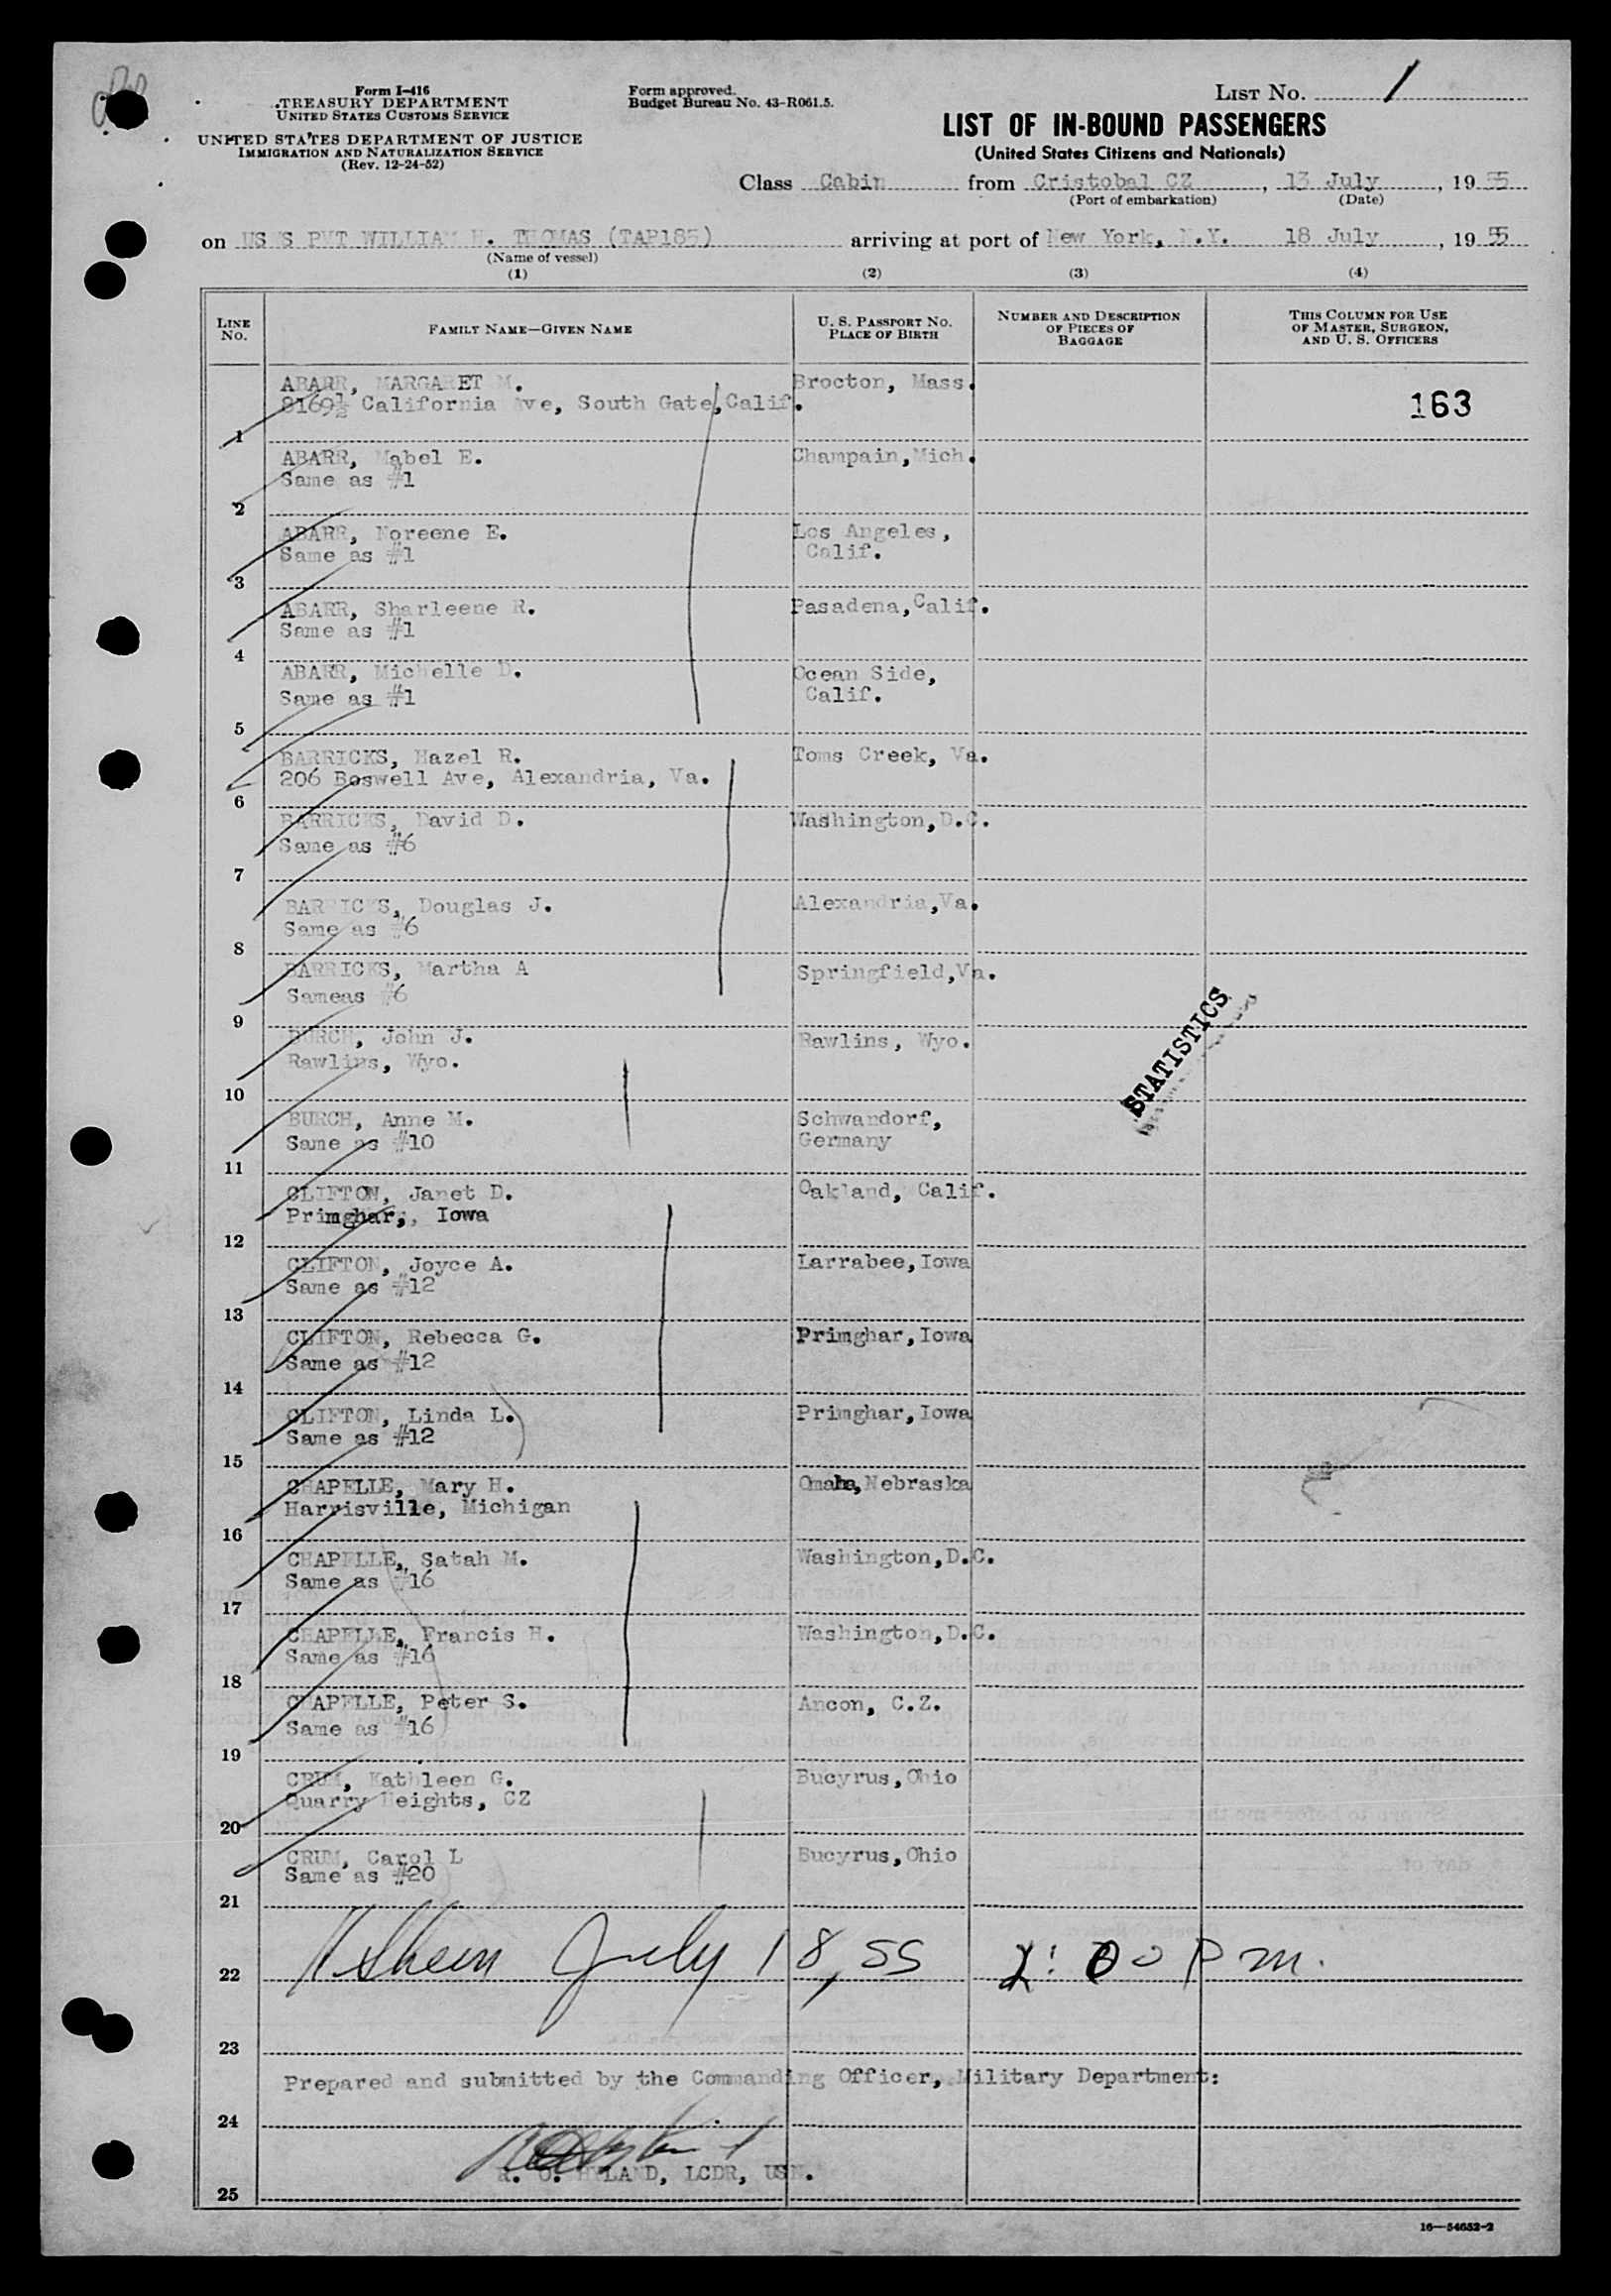 List No. 1
Form I-416
TREASURY DEPARTMENT
United States Customs Service
UNITED STATES DEPARTMENT OF JUSTICE
Immigration and Naturalization Service
(Rev. 12-24-52)
Form approved.
Budget Bureau No. 43-R061.5.
LIST OF IN-BOUND PASSENGERS
(United States Citizens and Nationals)
Class Cabin from Cristobal CZ, 13 July, 1955
(Port of embarkation) (Date)
on USNS PVT WILLIAM H. THOMAS (TAP185) arriving at port of New York, N.Y. 18 July, 1955
(Name of vessel)
(1) (2) (3) (4)
Line No. Family Name—Given Name U. S. Passport No. Place of Birth Number and Description of Pieces of Baggage This Column for Use of Master, Surgeon, and U. S. Officers
ABARR, MARGARET M. Brocton, Mass.
8169½ California Ave, South Gate, Calif. 163
1
ABARR, Mabel E. Champain, Mich.
Same as #1
2
ABARR, Noreene E. Los Angeles,
Same as #1 Calif.
3
ABARR, Sharleene R. Pasadena, Calif.
Same as #1
4
ABARR, Michelle D. Ocean Side,
Same as #1 Calif.
5
BARRICKS, Hazel R. Toms Creek, Va.
206 Boswell Ave, Alexandria, Va.
6
BARRICKS, David D. Washington, D.C.
Same as #6
7
BARRICKS, Douglas J. Alexandria, Va.
Same as #6
8
BARRICKS, Martha A Springfield, Va.
Sameas #6
9
BURCH, John J. Rawlins, Wyo.
Rawlins, Wyo.
10
BURCH, Anne M. Schwandorf,
Same as #10 Germany
11
CLIFTON, Janet D. Oakland, Calif.
Primghar,, Iowa
12
CLIFTON, Joyce A. Larrabee, Iowa
Same as #12
13
CLIFTON, Rebecca G. Primghar, Iowa
Same as #12
14
CLIFTON, Linda L. Primghar, Iowa
Same as #12
15
CHAPELLE, Mary H. Omaha, Nebraska
Harrisville, Michigan
16
CHAPELLE, Satah M. Washington, D.C.
Same as #16
17
CHAPELLE, Francis H. Washington, D.C.
Same as #16
18
CHAPELLE, Peter S. Ancon, C.Z.
Same as #16
19
CRUM, Kathleen G. Bucyrus, Ohio
Quarry Heights, CZ
20
CRUM, Carol L Bucyrus, Ohio
Same as #20
21
STATISTICS
July 18, 55 2:00 P m.
22
23
Prepared and submitted by the Commanding Officer, Military Department:
24
R. O. HYLAND, LCDR, USN.
25
16—54652-2